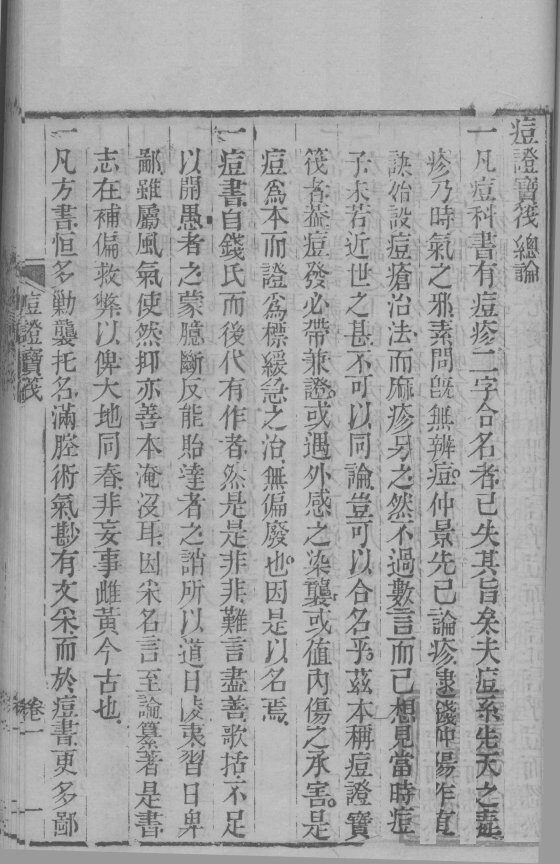 痘證寶筏總論
一凡痘科書有痘疹二字合名者已失其旨矣夫痘系先天之毒
疹乃時氣之邪素問旣無辨痘仲景先已論疹逮錢仲陽乍有
訣始設痘瘡治法而麻疹另之然不過數言而已想見當時痘
子未若近世之甚不可以同論豈可以合名乎茲本稱痘證寶
筏者葢痘發必帶兼證或遇外感之染襲或值內傷之承害是
痘爲本而證爲標緩急之治無偏廢也因是以名焉
一痘書自錢氏而後代有作者然是是非非難言盡善歌括不足
以開愚者之蒙臆斷反能貽達者之誚所以道日陵夷習日卑
鄙雖屬風氣使然抑亦善本淹沒耳因采名言至論纂著是書
志在補偏救弊以俾大地同春非妄事雌黃今古也
一凡方書恒多勦襲托名滿腔術氣尠有文采而於痘書更多鄙
痘證寶筏
卷一
一